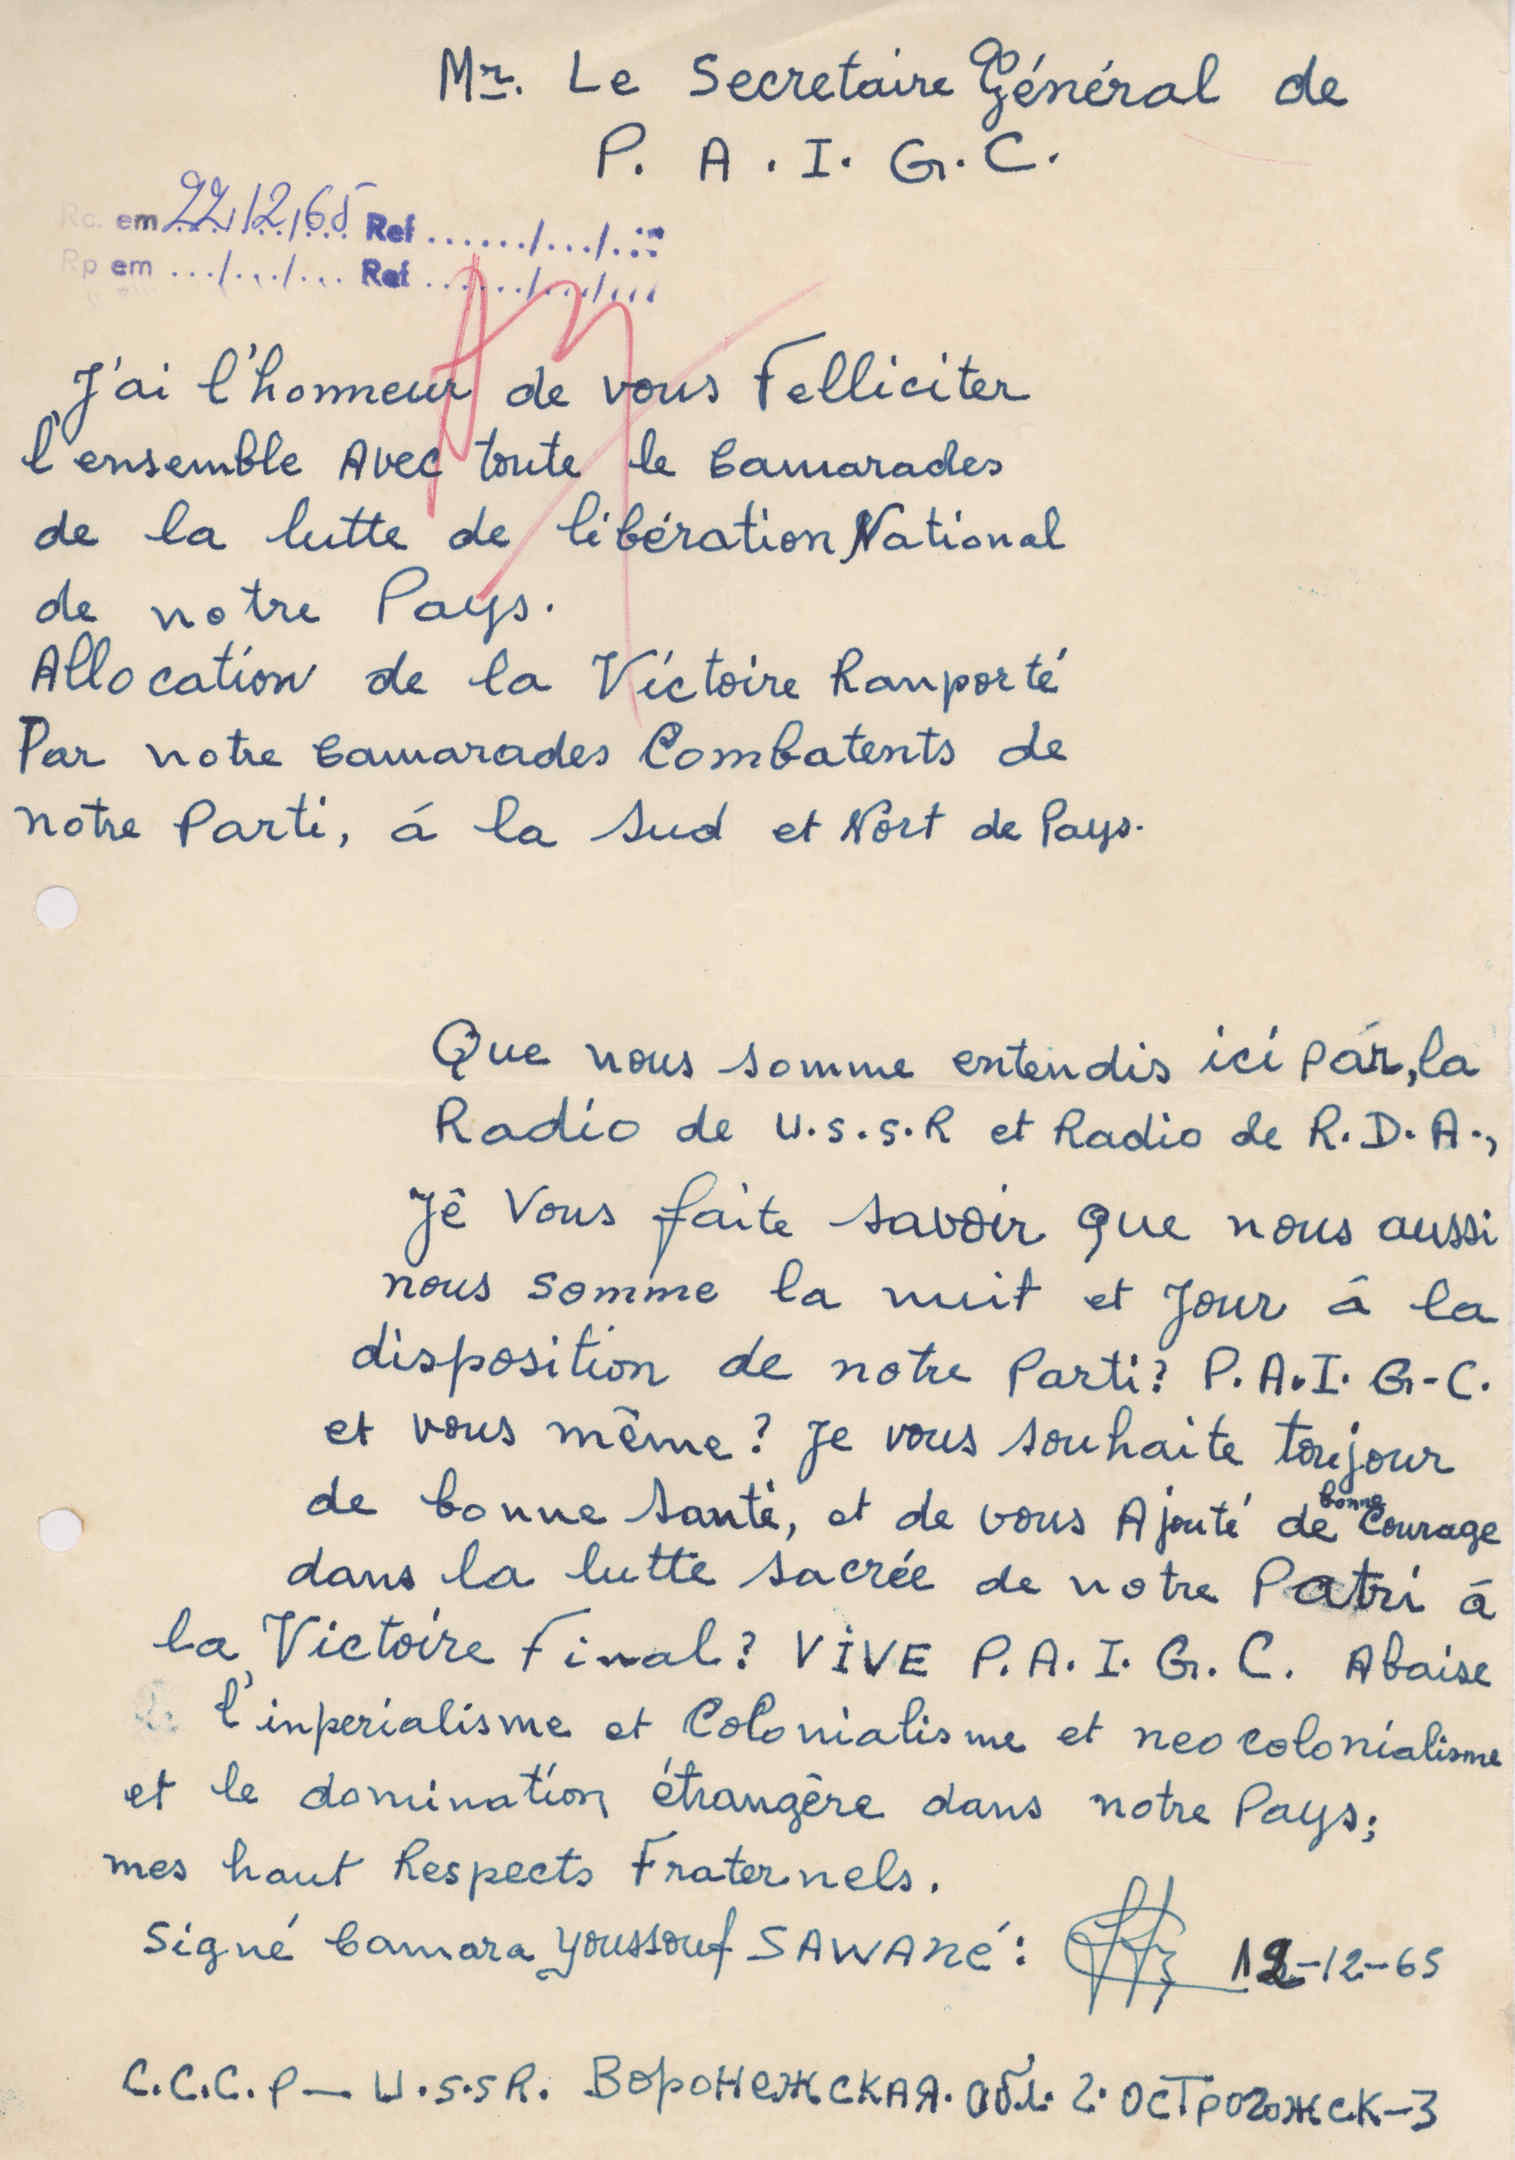 Mr. Le Secretaire Général de
P. A. I. G. C.
Rc. em 22/12/65 Ref ....../.../...
Rp em .../.../... Ref ....../.../...
J'ai l'honneur de vous Felliciter
l'ensemble Avec toute le Camarades
de la lutte de libération National
de notre Pays.
Allocation de la Victoire Ranporté
Par notre Camarades Combatents de
notre Parti, á la Sud et Nort de Pays.
Que nous somme entendis ici pár, la
Radio de U.S.S.R et Radio de R.D.A.,
Jê Vous faite savoir que nous aussi
nous somme la nuit et Jour á la
disposition de notre Parti? P.A.I.G-C.
et vous même? Je vous souhaite toujour
de bonne santé, et de vous Ajouté de bonne Courage
dans la lutte sacrée de notre Patri á
la Victoire Final? VIVE P.A.I.G.C. Abaise
l'inperialisme et Colonialisme et neocolonialisme
et le domination étrangêre dans notre Pays;
mes haut Respects Fraternels.
Signé Camara Youssouf SAWANé: 12-12-65
C.C.C.P — U.S.S R. Воронежская. обл. г. острогожск-3